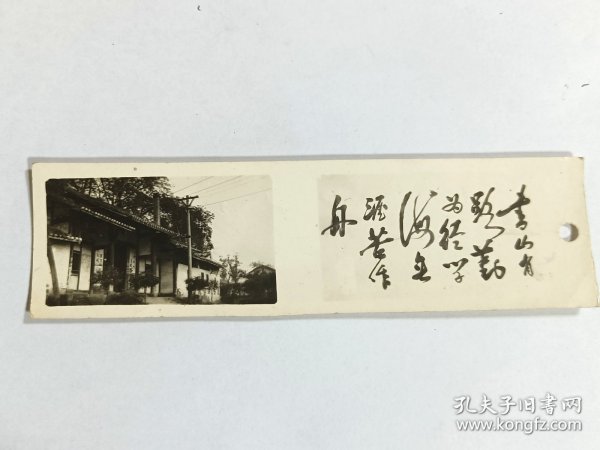 书山有
路勤
为径学
海无
涯苦作
舟
孔夫子旧书网
www.kongfz.com